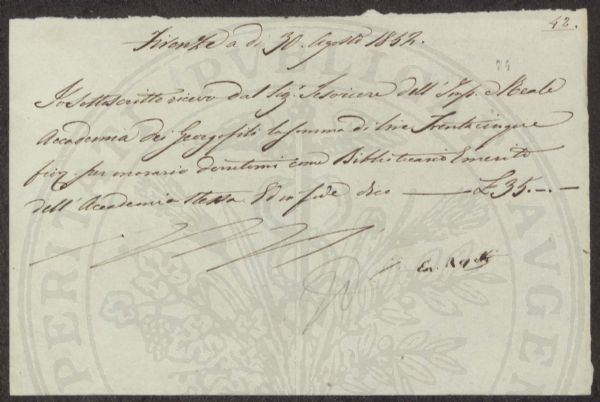 42.
Firenze a dì 30. Agosto 1852.
Io sottoscritto ricevo dal Sig.r Tesoriere dell'Imp. e Reale
Accademia dei Georgofili la somma di lire Trentacinque
fior. per onorario dovutomi come Bibliotecario Emerito
dell'Accademia stessa Ed in fede dico — £ 35.-.-
PERITAS AUGE